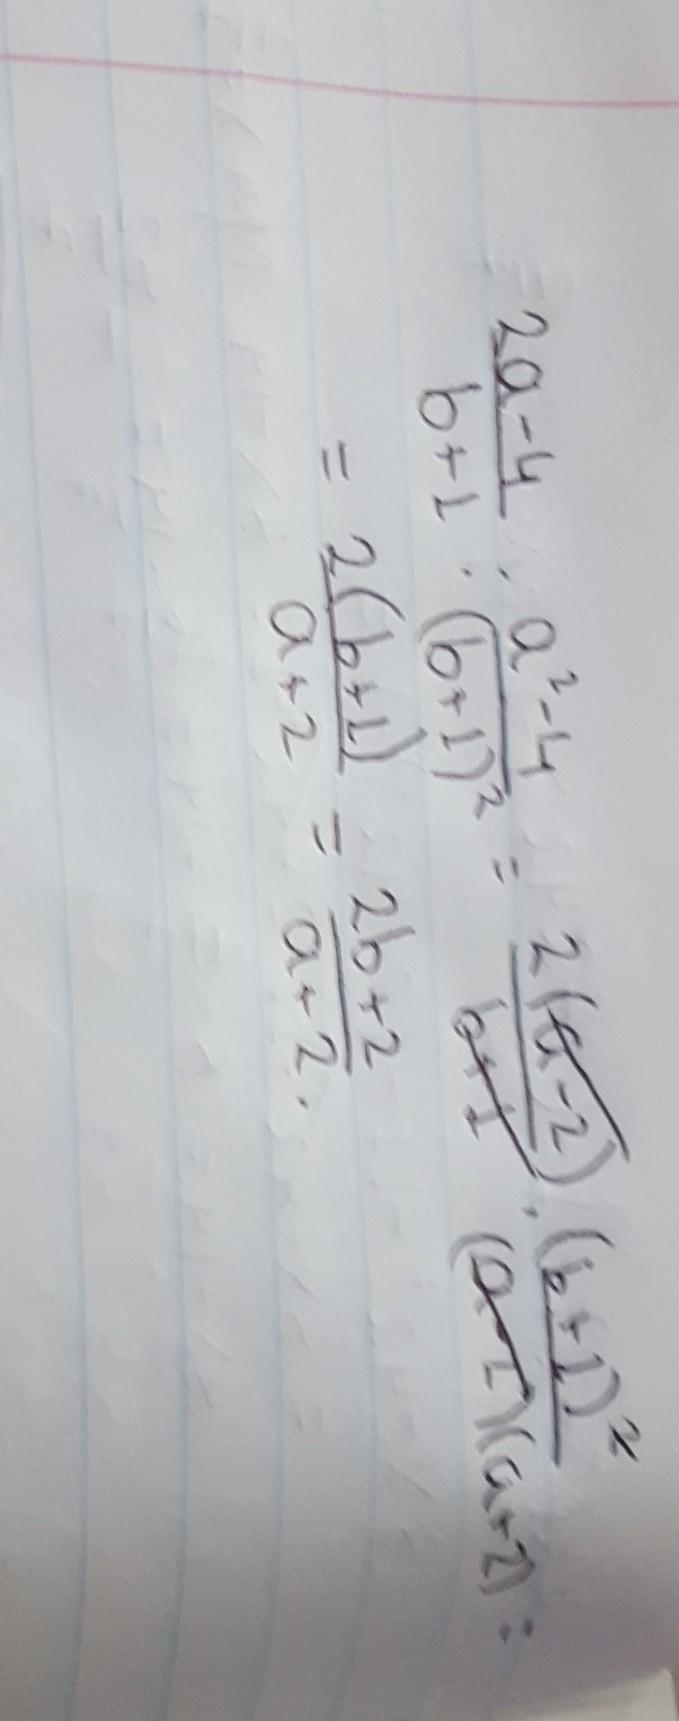 2a-4/b+1 : a²-4/(b+1)² = 2(a-2)/b+1 · (b+1)²/(a-2)(a+2) =
= 2(b+1)/a+2 = 2b+2/a+2.